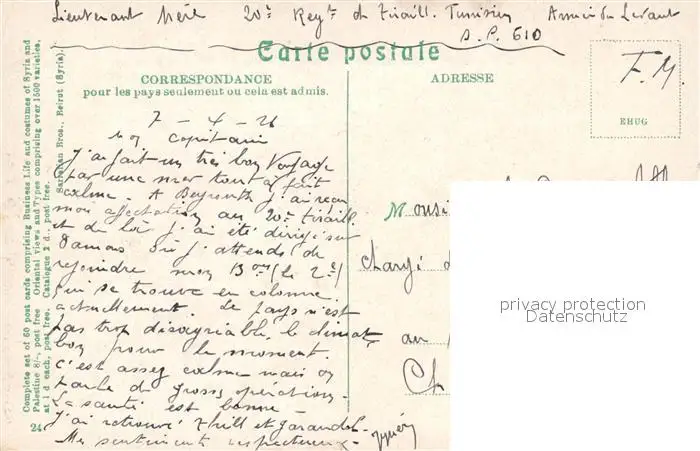 Lieutenant 20e Regt de Tiraill. Tunisien Armée du Levant
S.P. 610
Carte postale
CORRESPONDANCE
pour les pays seulement ou cela est admis.
ADRESSE
F.M.
EHUG
Complete set of 60 post cards comprising Business Life and costumes of Syria and
Palestine 8/-, post free Oriental views and Types comprising over 1500 varieties.
at 1 d each, post free. Catalogue 2 d., post free.
Sarrafian Bros., Beirut (Syria).
24
7 - 4 - 26
Mon Capitaine
J'ai fait un très bon voyage
par une mer tout à fait
calme. A Beyrouth j'ai reçu
mon affectation au 20e Tiraill.
et de là j'ai été dirigé sur
Damas où j'attends de
rejoindre mon Bon (le 2e)
qui se trouve en colonne
actuellement. Le pays n'est
pas trop désagréable, le climat
bon pour le moment.
C'est assez calme mais on
parle de grosses opérations.
La santé est bonne -
J'ai retrouvé et
Mes sentiments respectueux -
Monsi
chargé
au
Ch
privacy protection
Datenschutz